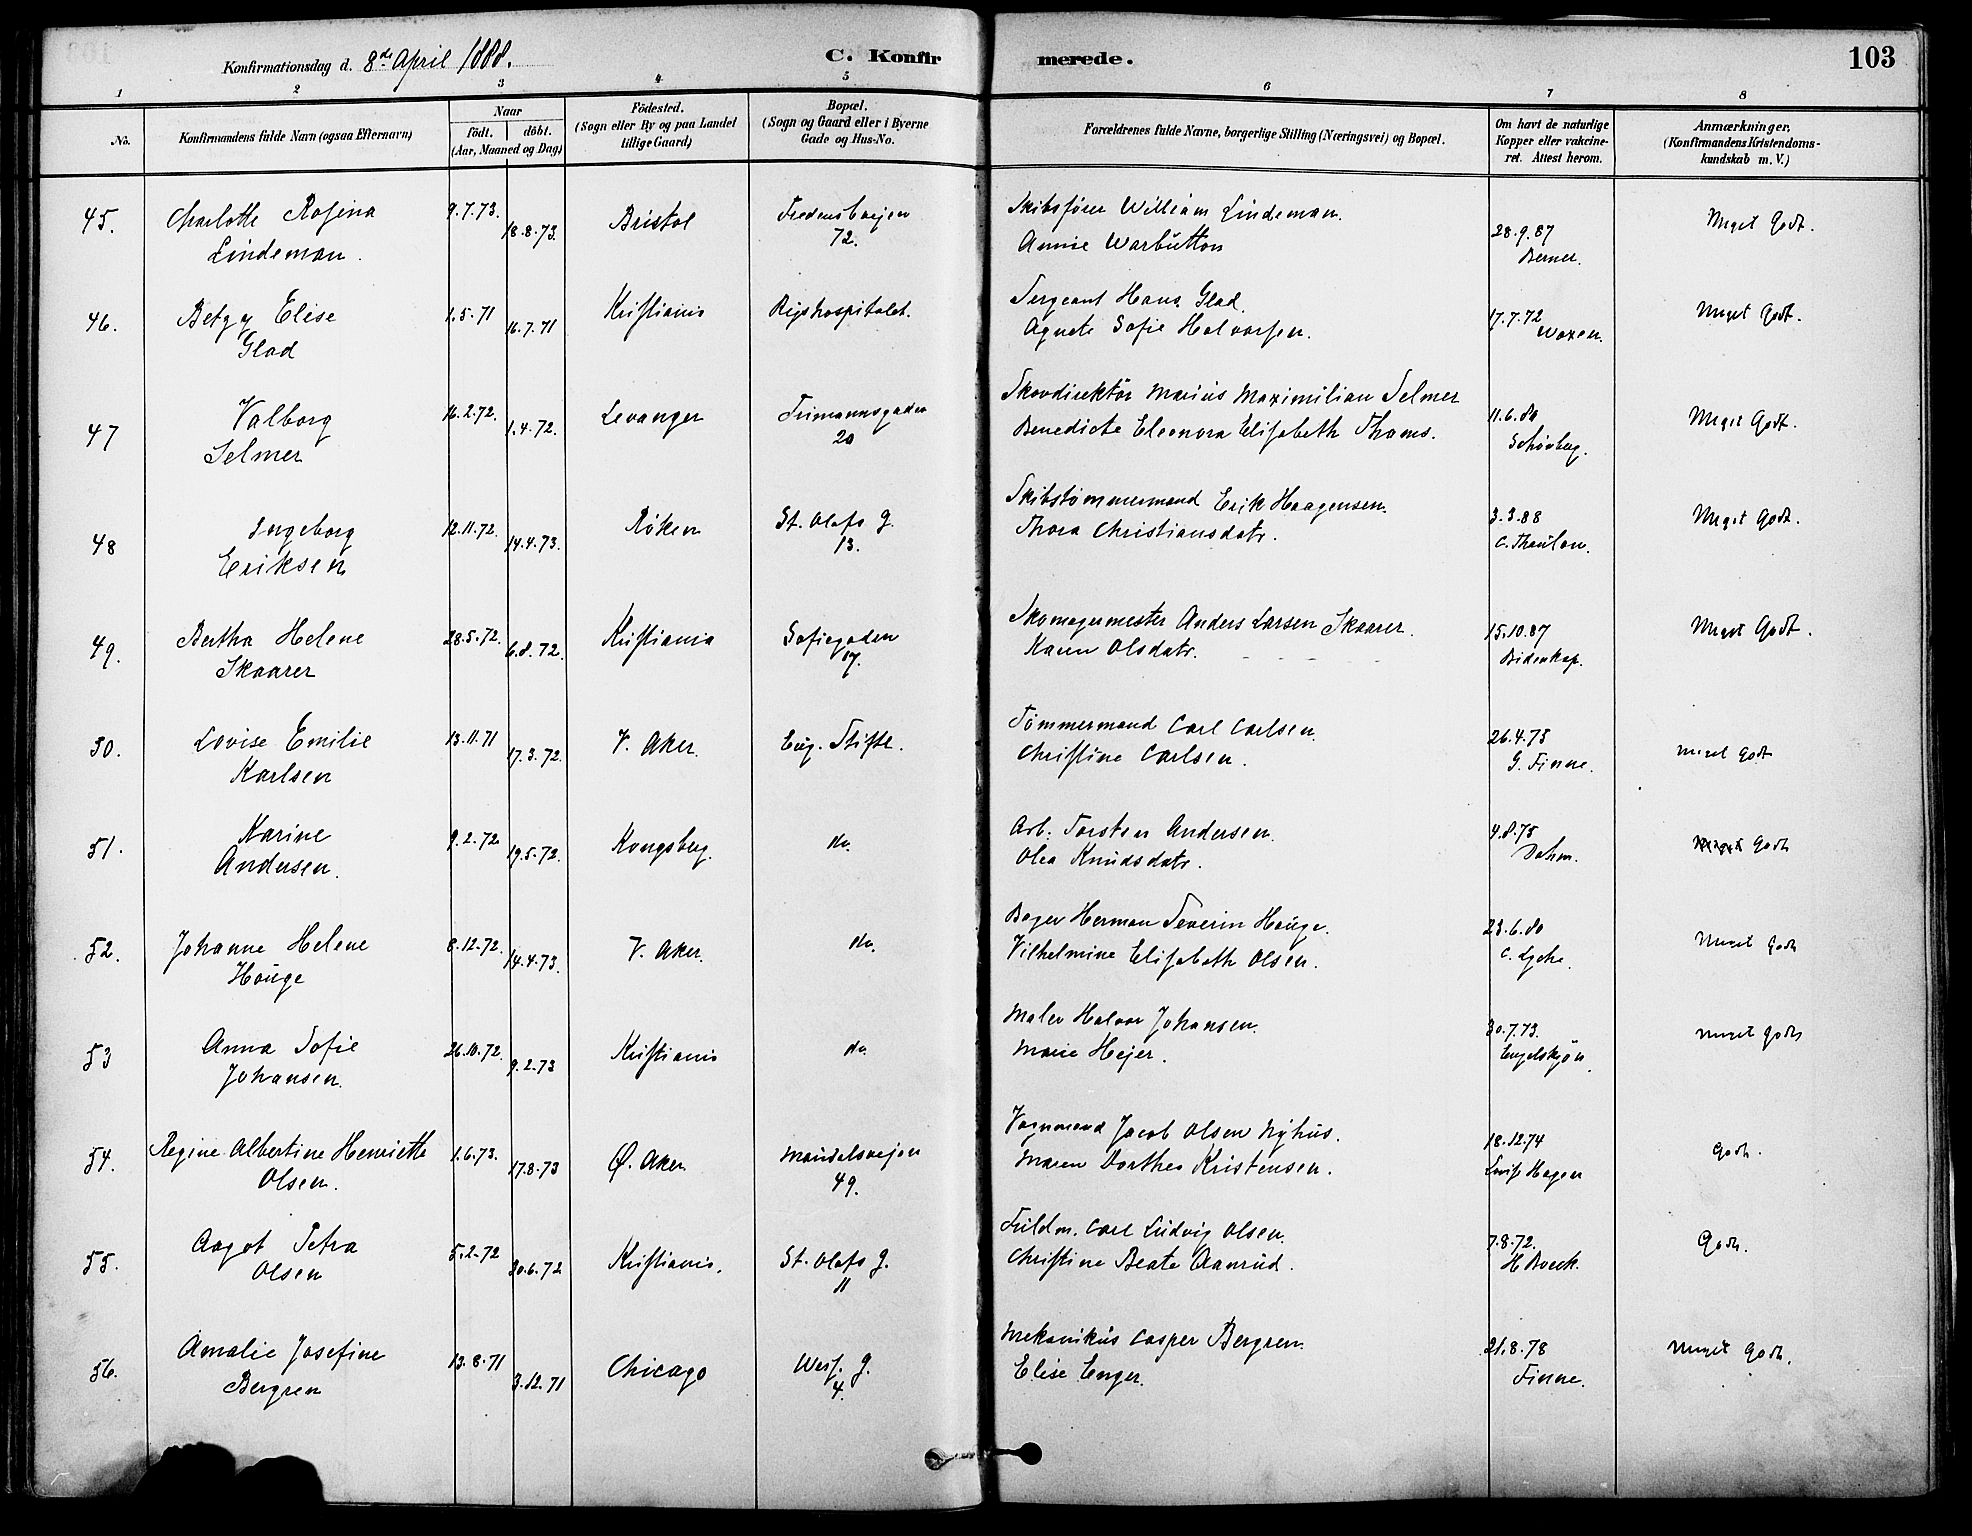 Konfirmationsdag d. 8de April 1888.
C. Konfirmerede.
103
1 2 3 4 5 6 7 8
No.
Konfirmandens fulde Navn (ogsaa Efternavn)
Naar
födt. döbt.
(Aar, Maaned og Dag)
Födested.
(Sogn eller By og paa Landet
tillige Gaard)
Bopæl.
(Sogn og Gaard eller i Byerne
Gade og Hus-No.
Forældrenes fulde Navne, borgerlige Stilling (Næringsvei) og Bopæl.
Om havt de naturlige
Kopper eller vakcine-
ret. Attest herom.
Anmærkninger.
(Konfirmandens Kristendoms-
kundskab m. V.)
45. Charlotte Rosina 9.7.73. 18.8.73. Bristol Fredensborgveien Skibsfører William Lindeman. 28.9.87 Meget Godt.
Lindeman. 72. Annie Warbutton Berner.
46. Betzy Elise 1.5.71 16.7.71 Kristiania Rigshospitalet. Sergeant Hans Glad. 17.7.72 Meget Godt.
Glad Agnete Sofie Halvorsen.
47 Valborg 16.2.72. 1.4.72. Levanger Skovdirektör Marius Maximilian Selmer 11.6.80 Meget Godt.
Selmer 20 Benedicte Eleonora Elisabeth Thams. Schiøberg.
48 Ingeborg 12.11.72. 14.4.73. Røken St. Olafs g. Skibstømmermand Erik Haagensen. 3.3.88 Meget Godt.
Eriksen 13. Thora Christiansdatr. C. Thaulow.
49. Bertha Helene 28.5.72. 6.8.72. Kristiania Sofiegaden Skomagermester Anders Larsen Skaarer. 15.10.87 Meget Godt.
Skaarer 17. Karen Olsdatr. Bidenkap.
50. Lovise Emilie 13.11.71 17.3.72. V. Aker. Eug. Stifte. Tømmermand Carl Carlsen. 26.4.75 Meget Godt
Karlsen Christine Carlsen. G. Finne.
51. Karine 9.2.72 19.5.72. Kongsberg. do. Arb. Torsten Andersen. 4.8.75 Meget Godt
Andersen. Olea Knudsdatr. Dahm.
52. Johanne Helene 8.12.72. 14.4.73. V. Aker. do. Bager Herman Severin Hauge. 23.6.80 Meget Godt
Hauge Vilhelmine Elisabeth Olsen. C. Lyche.
53 Anna Sofie 26.10.72. 9.2.73 Kristiania do. Maler Halvor Johansen. 30.7.73. Meget Godt
Johansen. Marie Hejer. Engelskjøn.
54. Regine Albertine Henriette 1.6.73. 17.8.73 Ø. Aker Maridalsvejen Vognmand Jacob Olsen Nyhus. 18.12.74 Godt.
Olsen. 49. Maren Dorthea Kristensen. Hagen
55. Aagot Petra 5.2.72 30.6.72 Kristiania. St. Olafs g. Fuldm. Carl Ludvig Olsen. 7.8.72. Godt.
Olsen 11 Christine Beate Aamrud. H Boeck.
56. Amalie Josefine 13.8.71 3.12.71 Chicago g. Mekanikus Casper Bergren. 21.8.78 Meget Godt.
Bergren 4. Elise Enger. Finne.